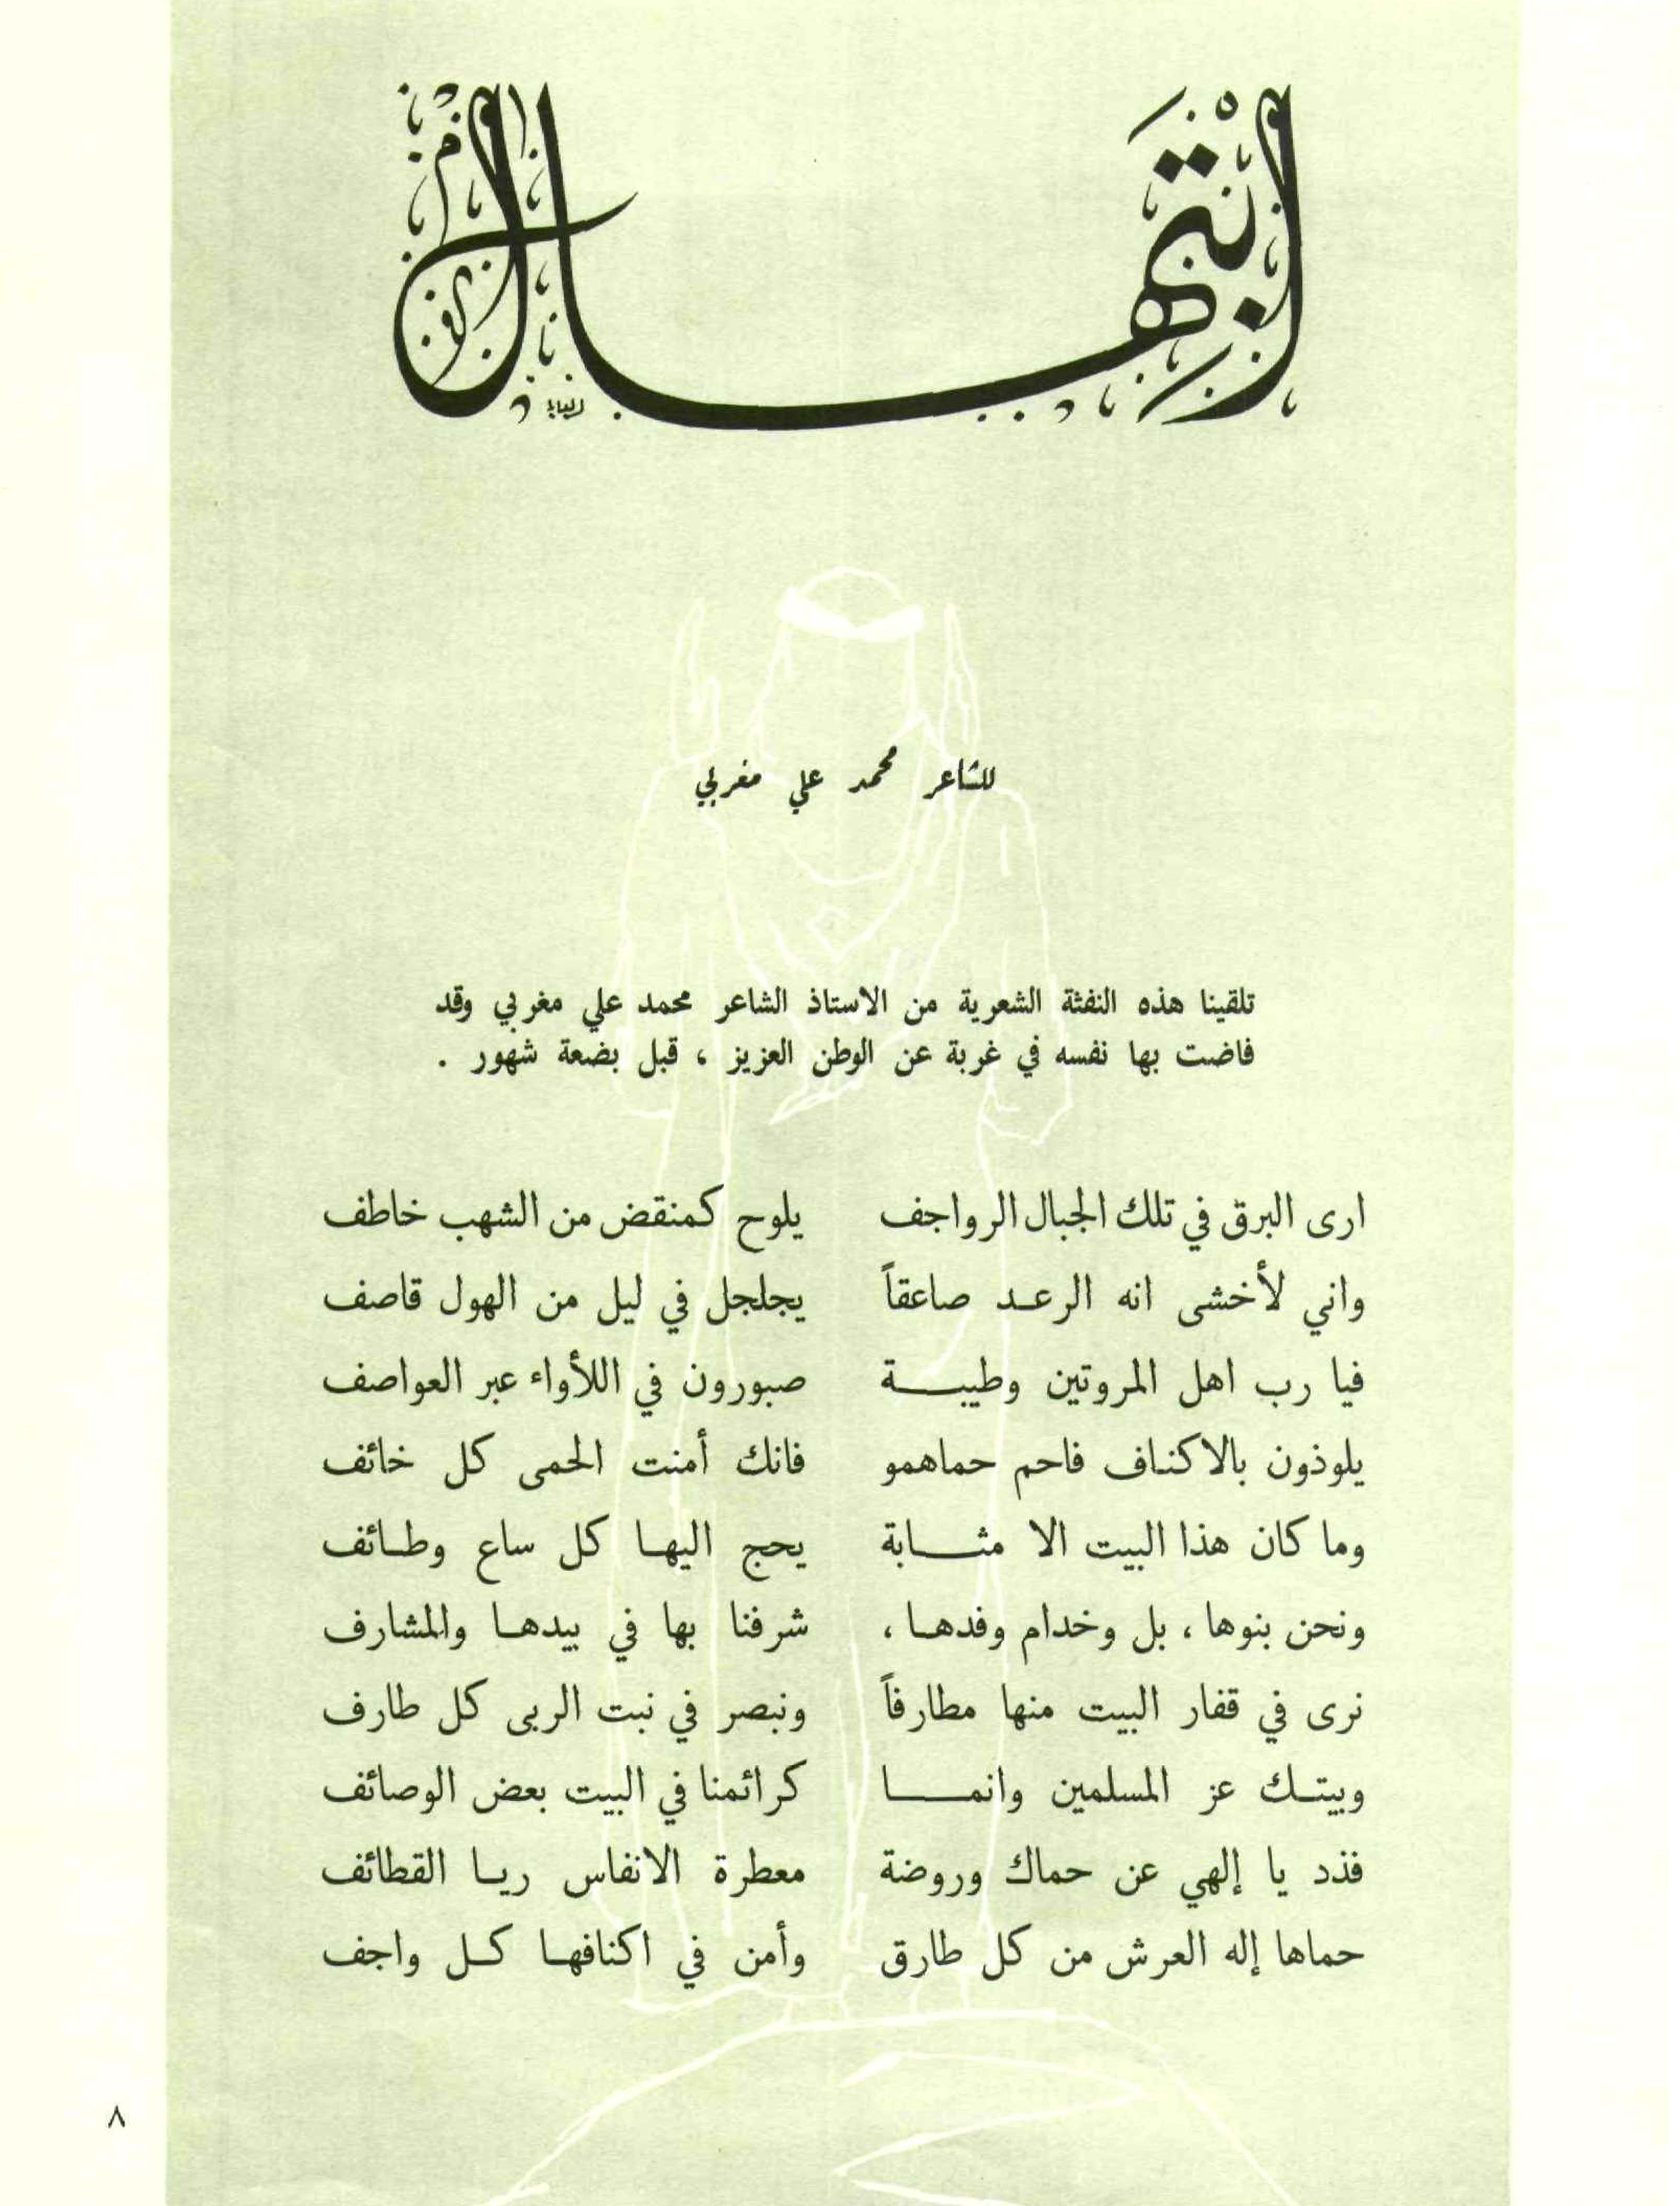 ابتهال
للشاعر محمد علي مغربي
تلقينا هذه النفثة الشعرية من الاستاذ الشاعر محمد علي مغربي وقد
فاضت بها نفسه في غربة عن الوطن العزيز ، قبل بضعة شهور .
ارى البرق في تلك الجبال الرواجف يلوح كمنقض من الشهب خاطف
واني لأخشى انه الرعد صاعقاً يجلجل في ليل من الهول قاصف
فيا رب اهل المروتين وطيبة صبورون في اللأواء عبر العواصف
يلوذون بالاكناف فاحم حماهمو فانك أمنت الحمى كل خائف
وما كان هذا البيت الا مثابة يحج اليها كل ساع وطائف
ونحن بنوها ، بل وخدام وفدها ، شرفنا بها في بيدها والمشارف
نرى في قفار البيت منها مطارفاً ونبصر في نبت الربى كل طارف
وبيتك عز المسلمين وانما كرائمنا في البيت بعض الوصائف
فذد يا إلهي عن حماك وروضة معطرة الانفاس ريا القطائف
حماها إله العرش من كل طارق وأمن في اكنافها كل واجف
٨